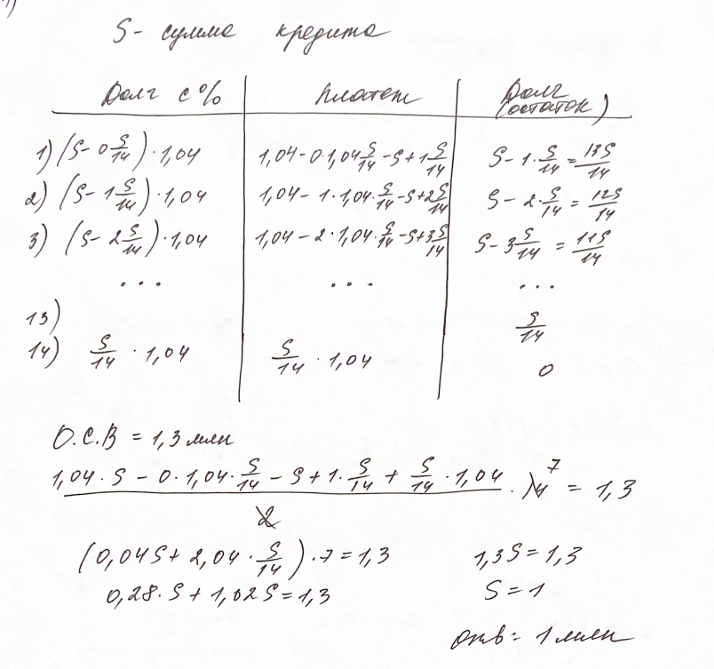 S - сумма кредита
Долг с % Платеж Долг (остаток)
1) (S - 0 S/14) · 1,04 1,04 - 0 · 1,04 S/14 - S + 1 S/14 S - 1 · S/14 = 13S/14
2) (S - 1 S/14) · 1,04 1,04 - 1 · 1,04 · S/14 - S + 2 S/14 S - 2 · S/14 = 12S/14
3) (S - 2 S/14) · 1,04 1,04 - 2 · 1,04 · S/14 - S + 3 S/14 S - 3 S/14 = 11S/14
... ... ...
13) S/14
14) S/14 · 1,04 S/14 · 1,04 0
О.С.В = 1,3 млн
(1,04 · S - 0 · 1,04 · S/14 - S + 1 · S/14 + S/14 · 1,04)/2 · 14 7 = 1,3
(0,04S + 2,04 · S/14) · 7 = 1,3 1,3S = 1,3
0,28 · S + 1,02S = 1,3 S = 1
отв: 1 млн